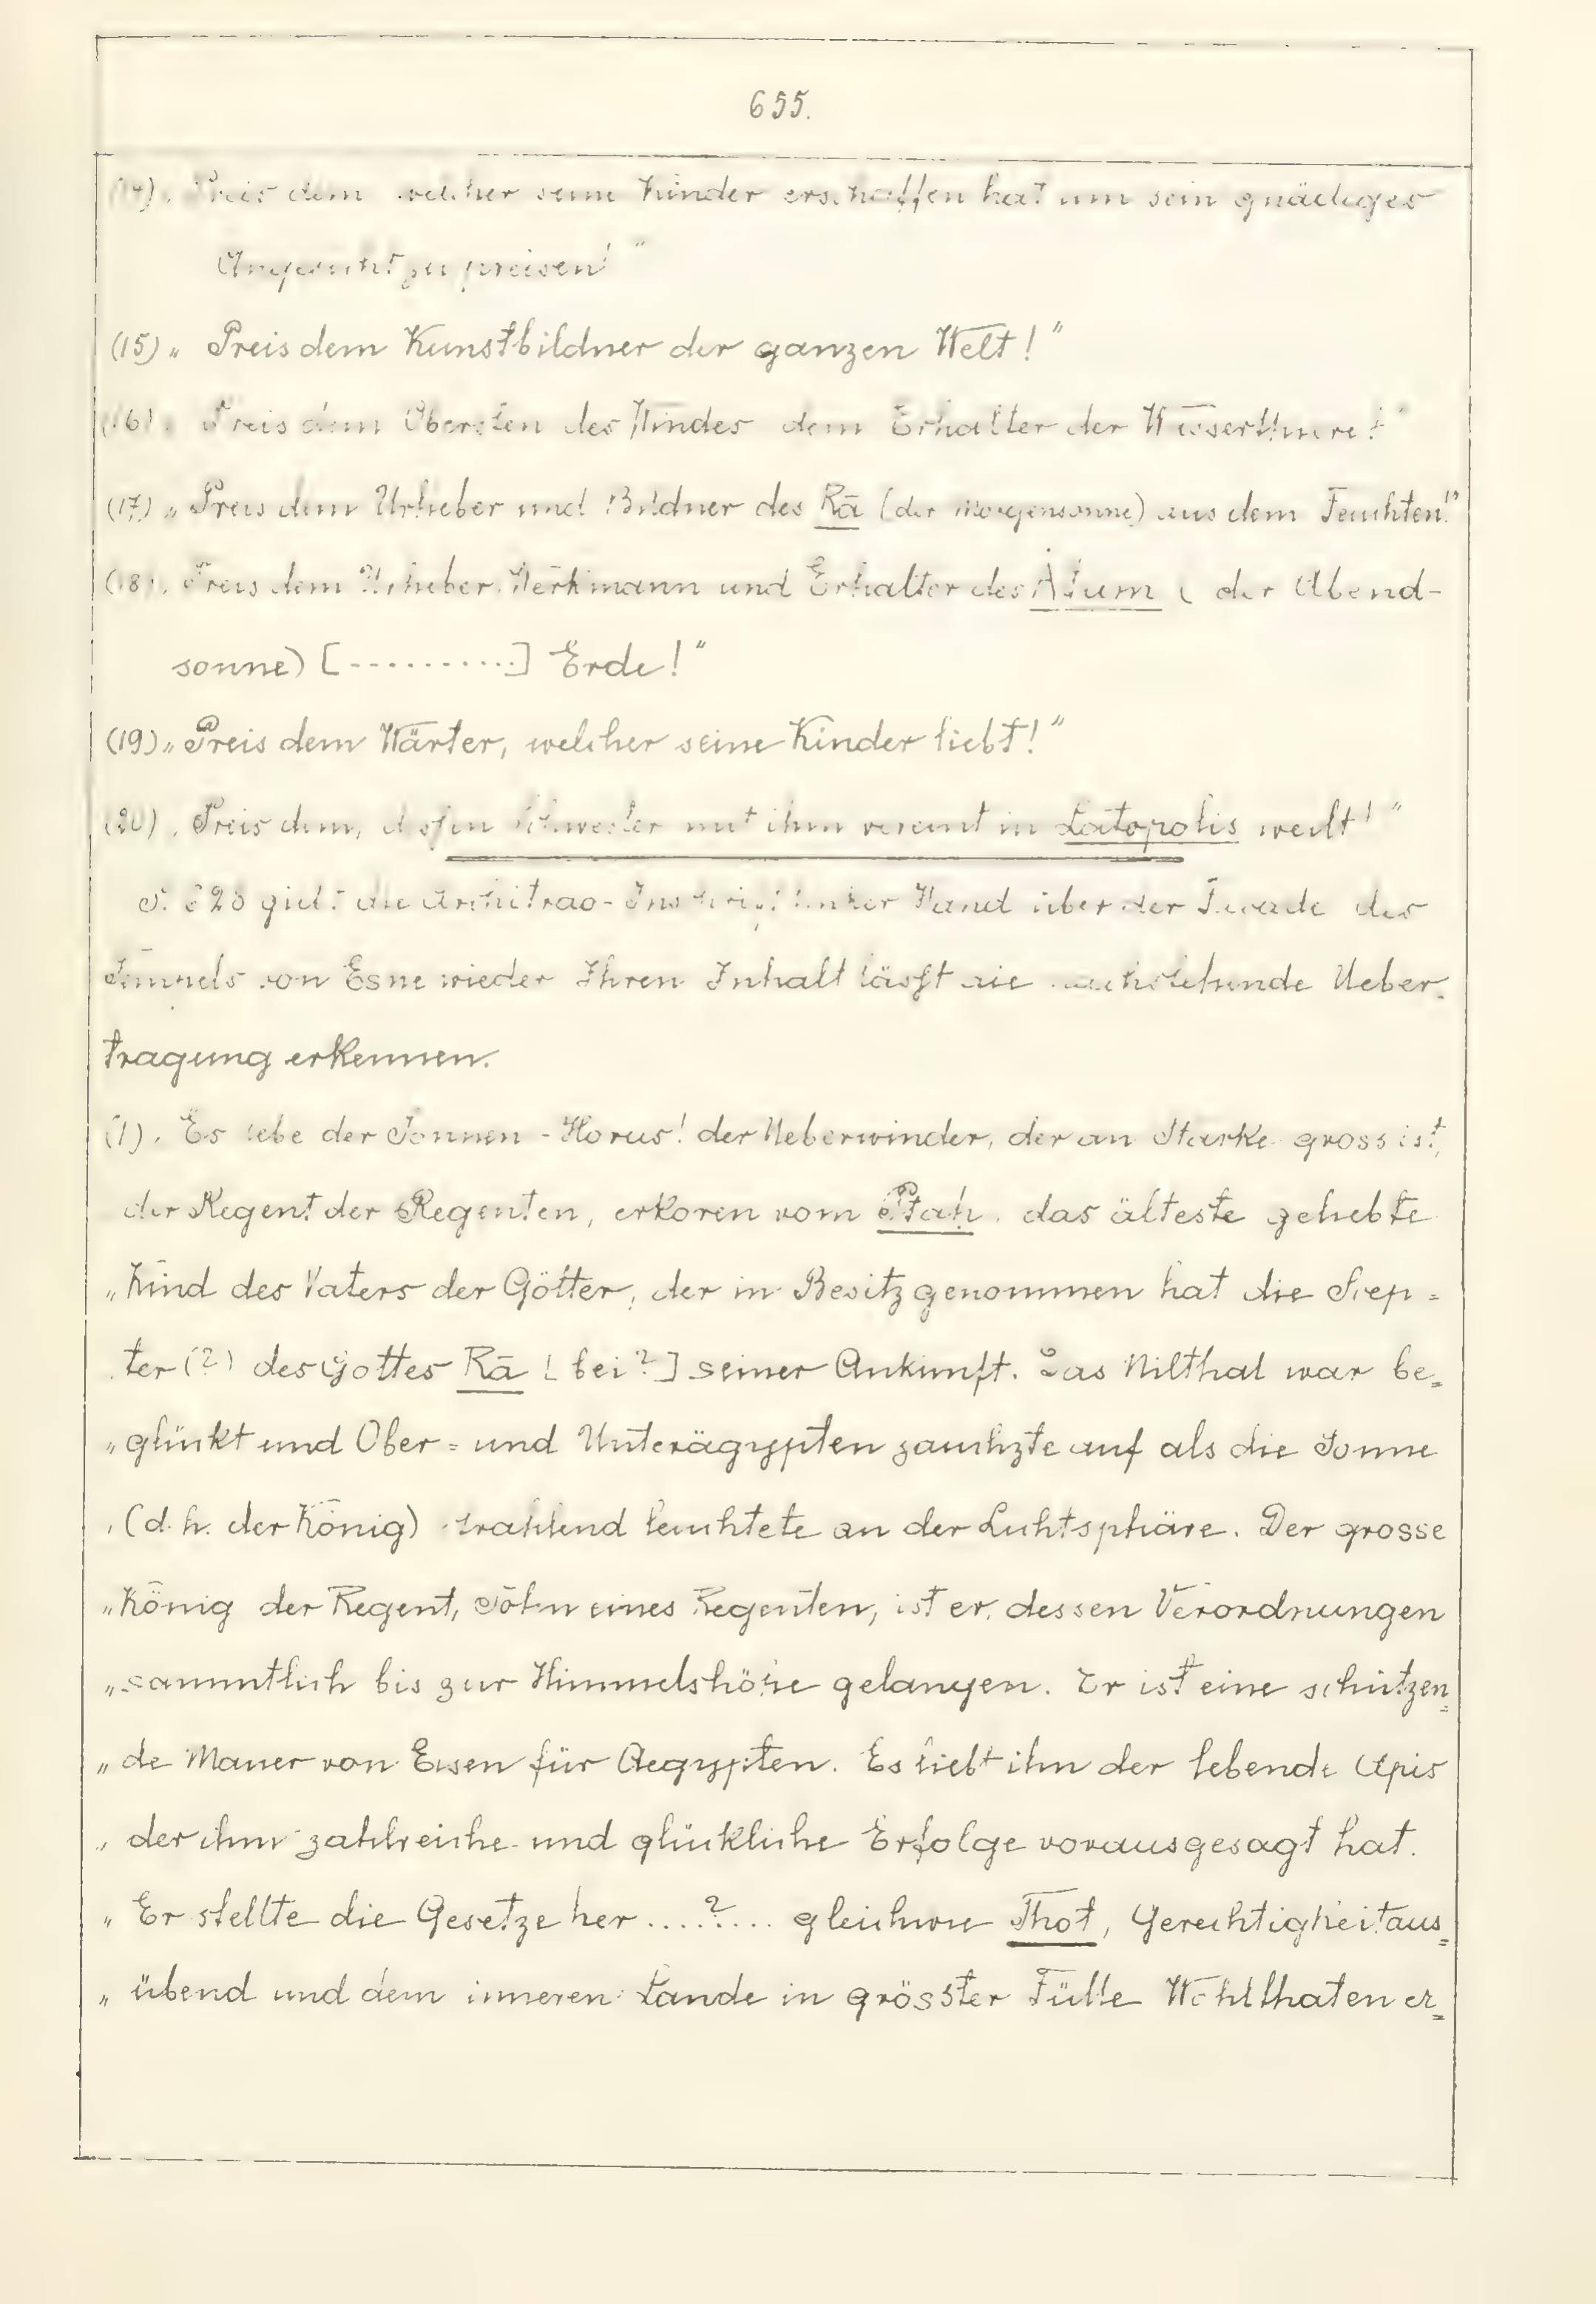 655.
(14). Preis dem welcher seine Kinder erschaffen hat um sein gnädiges
Angesicht zu preisen! "
(15) „ Preis dem Kunstbildner der ganzen Welt! "
(16) „ Preis dem Obersten des Windes dem Erhalter der Wasserthiere! "
(17) „ Preis dem Urheber und Bildner des Rā (der Morgensonne) aus dem Feuchten!"
(18). Preis dem Urheber, Werkmann und Erhalter des Atum ( der Abend-
sonne) [- - - - - - - - - -] Erde! "
(19) „ Preis dem Wärter, welcher seine Kinder liebt! "
(20) . Preis dem, dessen Schwester mit ihm vereint in Latopolis weilt! "
S. giebt die Architrav-Inschrift linker Hand über der Facade des
Tempels von Esne wieder Ihren Inhalt lässt die nachstehende Ueber-
tragung erkennen.
(1). Es lebe der Sonnen-Horus! der Ueberwinder, der an Starke gross ist,
der Regent der Regenten, erkoren vom Ptah, das älteste geliebte
„ Kind des Vaters der Götter, der in Besitz genommen hat die Scep=
ter (?) des Gottes Rā [ bei ? ] seiner Ankunft. Das Nilthal war be=
„ glückt und Ober= und Unterägypten jauchzte auf als die Sonne
„ (d. h. der König) strahlend leuchtete an der Lichtsphäre. Der grosse
„ König der Regent, Sohn eines Regenten, ist er, dessen Verordnungen
„ sammtlich bis zur Himmelshöhe gelangen. Er ist eine schützen=
„ de Mauer von Eisen für Aegypten. Es liebt ihn der lebende Apis
„ der ihm zahlreiche und glückliche Erfolge vorausgesagt hat.
„ Er stellte die Gesetze her ....?.... gleichwie Thot, Gerechtigkeit aus=
„ übend und dem inneren Lande in grösster Fülle Wohlthaten er=